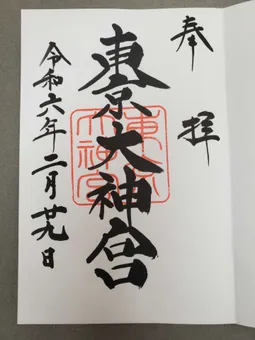 奉拝
東京大神宮
東京大神宮
令和六年二月廿九日